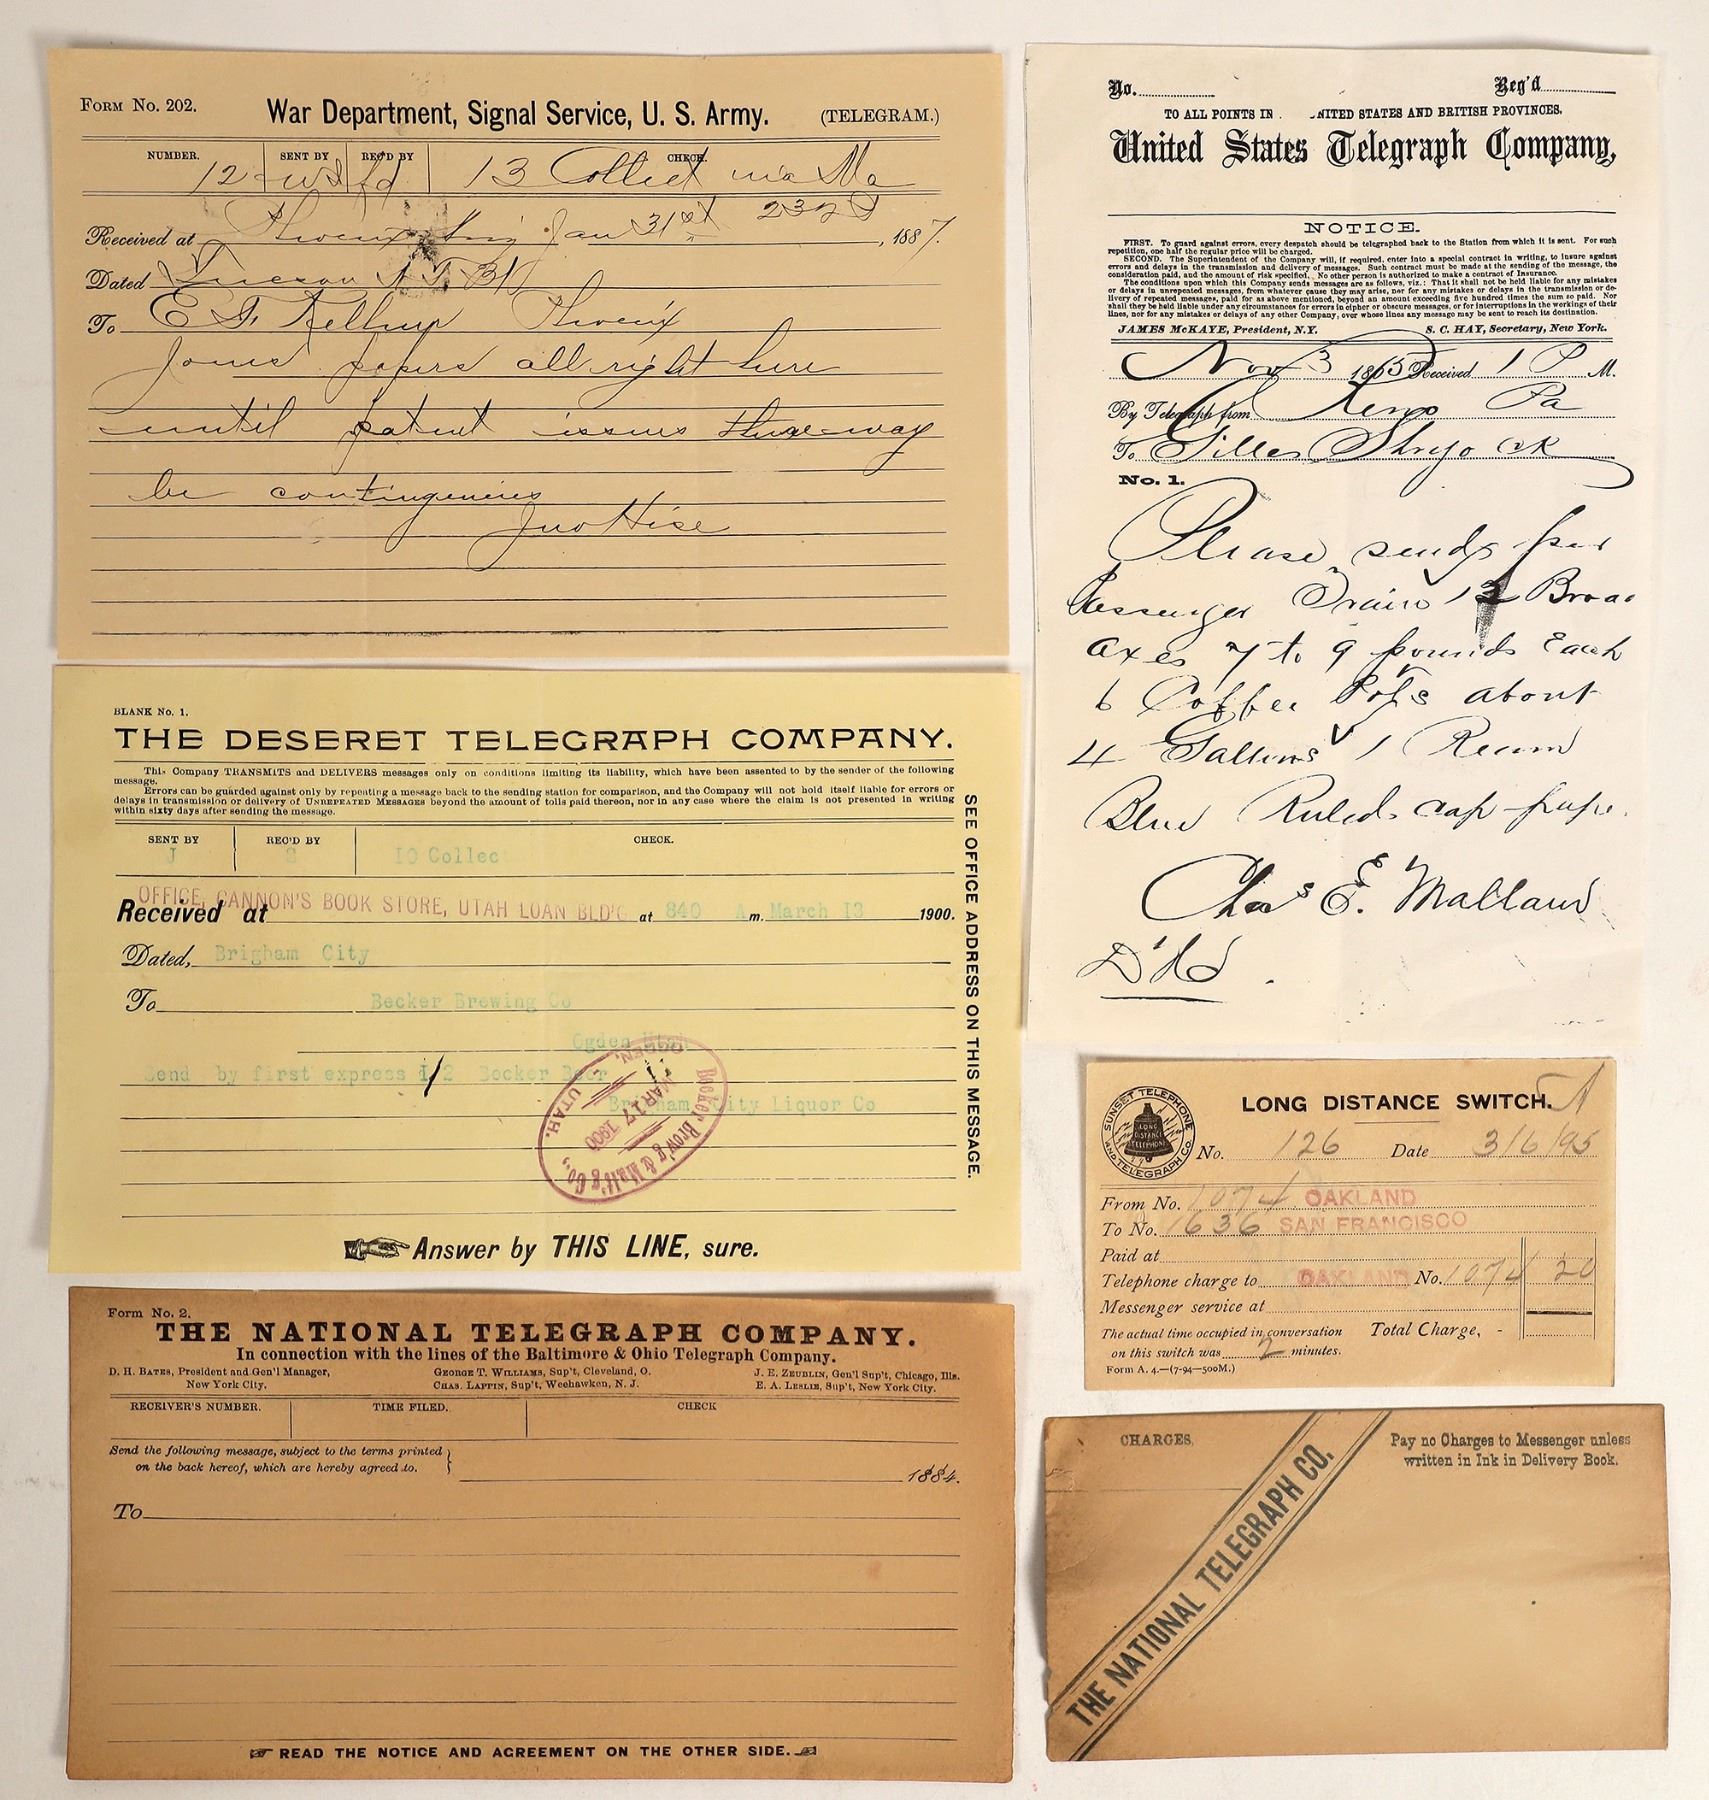 FORM NO. 202. War Department, Signal Service, U. S. Army. (TELEGRAM.)
NUMBER. SENT BY REC'D BY CHECK.
12 fd 13 Collect via Ma
Received at Phoenix Jan 31st 232 , 1887.
Dated Tucson A.T. 31
To E F Kellner Phoenix
Jones papers all right here
until patent issues there may
be contingencies
Jno Hise
BLANK No. 1.
THE DESERET TELEGRAPH COMPANY.
This Company TRANSMITS and DELIVERS messages only on conditions limiting its liability, which have been assented to by the sender of the following
message.
Errors can be guarded against only by repeating a message back to the sending station for comparison, and the Company will not hold itself liable for errors or
delays in transmission or delivery of UNREPEATED MESSAGES beyond the amount of tolls paid thereon, nor in any case where the claim is not presented in writing
within sixty days after sending the message.
SENT BY REC'D BY CHECK.
J S 10 Collec
Received at OFFICE, CANNON'S BOOK STORE, UTAH LOAN BLD'G at 840 A m. March 13 1900.
Dated, Brigham City
To Becker Brewing Co
Ogden Utah
Send by first express 1/2 Becker Beer
Brigham City Liquor Co
Becker Brew'g & Malt'g Co.
MAR 17 1900
OGDEN, UTAH.
Answer by THIS LINE, sure.
SEE OFFICE ADDRESS ON THIS MESSAGE.
Form No. 2.
THE NATIONAL TELEGRAPH COMPANY.
In connection with the lines of the Baltimore & Ohio Telegraph Company.
D. H. BATES, President and Gen'l Manager, GEORGE T. WILLIAMS, Sup't, Cleveland, O. J. E. ZEUBLIN, Gen'l Sup't, Chicago, Ills.
New York City. CHAS. LAPPIN, Sup't, Weehawken, N. J. E. A. LESLIE, Sup't, New York City.
RECEIVER'S NUMBER. TIME FILED. CHECK
Send the following message, subject to the terms printed
on the back hereof, which are hereby agreed to.
1884.
To
READ THE NOTICE AND AGREEMENT ON THE OTHER SIDE.
No. Rec'd
TO ALL POINTS IN NITED STATES AND BRITISH PROVINCES.
United States Telegraph Company,
NOTICE.
FIRST. To guard against errors, every despatch should be telegraphed back to the Station from which it is sent. For such
repetition, one half the regular price will be charged.
SECOND. The Superintendent of the Company will, if required, enter into a special contract in writing, to insure against
errors and delays in the transmission and delivery of messages. Such contract must be made at the sending of the message, the
consideration paid, and the amount of risk specified. No other person is authorized to make a contract of Insurance.
The conditions upon which this Company sends messages are as follows, viz.: That it shall not be held liable for any mistakes
or delays in unrepeated messages, from whatever cause they may arise, nor for any mistakes or delays in the transmission or de-
livery of repeated messages, paid for as above mentioned, beyond an amount exceeding five hundred times the sum so paid. Nor
shall they be held liable under any circumstances for errors in cipher or obscure messages, or for interruptions in the workings of their
lines, nor for any mistakes or delays of any other Company, over whose lines any message may be sent to reach its destination.
JAMES McKAYE, President, N.Y. S. C. HAY, Secretary, New York.
Nov 3 1865 Received 1 P M.
By Telegraph from Reno Pa
To Gilles Shryock
No. 1.
Please send per
Passenger Train 12 Broad
axes 7 to 9 pounds Each
6 Coffee Pots about
4 Gallons 1 Ream
Blue Ruled cap paper
Chas E. Malland
D'Hd
SUNSET TELEPHONE AND TELEGRAPH CO.
LONG DISTANCE TELEPHONE
LONG DISTANCE SWITCH.
No. 126 Date 3/6/95
From No. 1074 OAKLAND
To No. 1636 SAN FRANCISCO
Paid at
Telephone charge to OAKLAND No. 1074 20
Messenger service at
The actual time occupied in conversation Total Charge, -
on this switch was 2 minutes.
Form A. 4.—(7-94—500M.)
CHARGES, Pay no Charges to Messenger unless
written in Ink in Delivery Book.
THE NATIONAL TELEGRAPH CO.